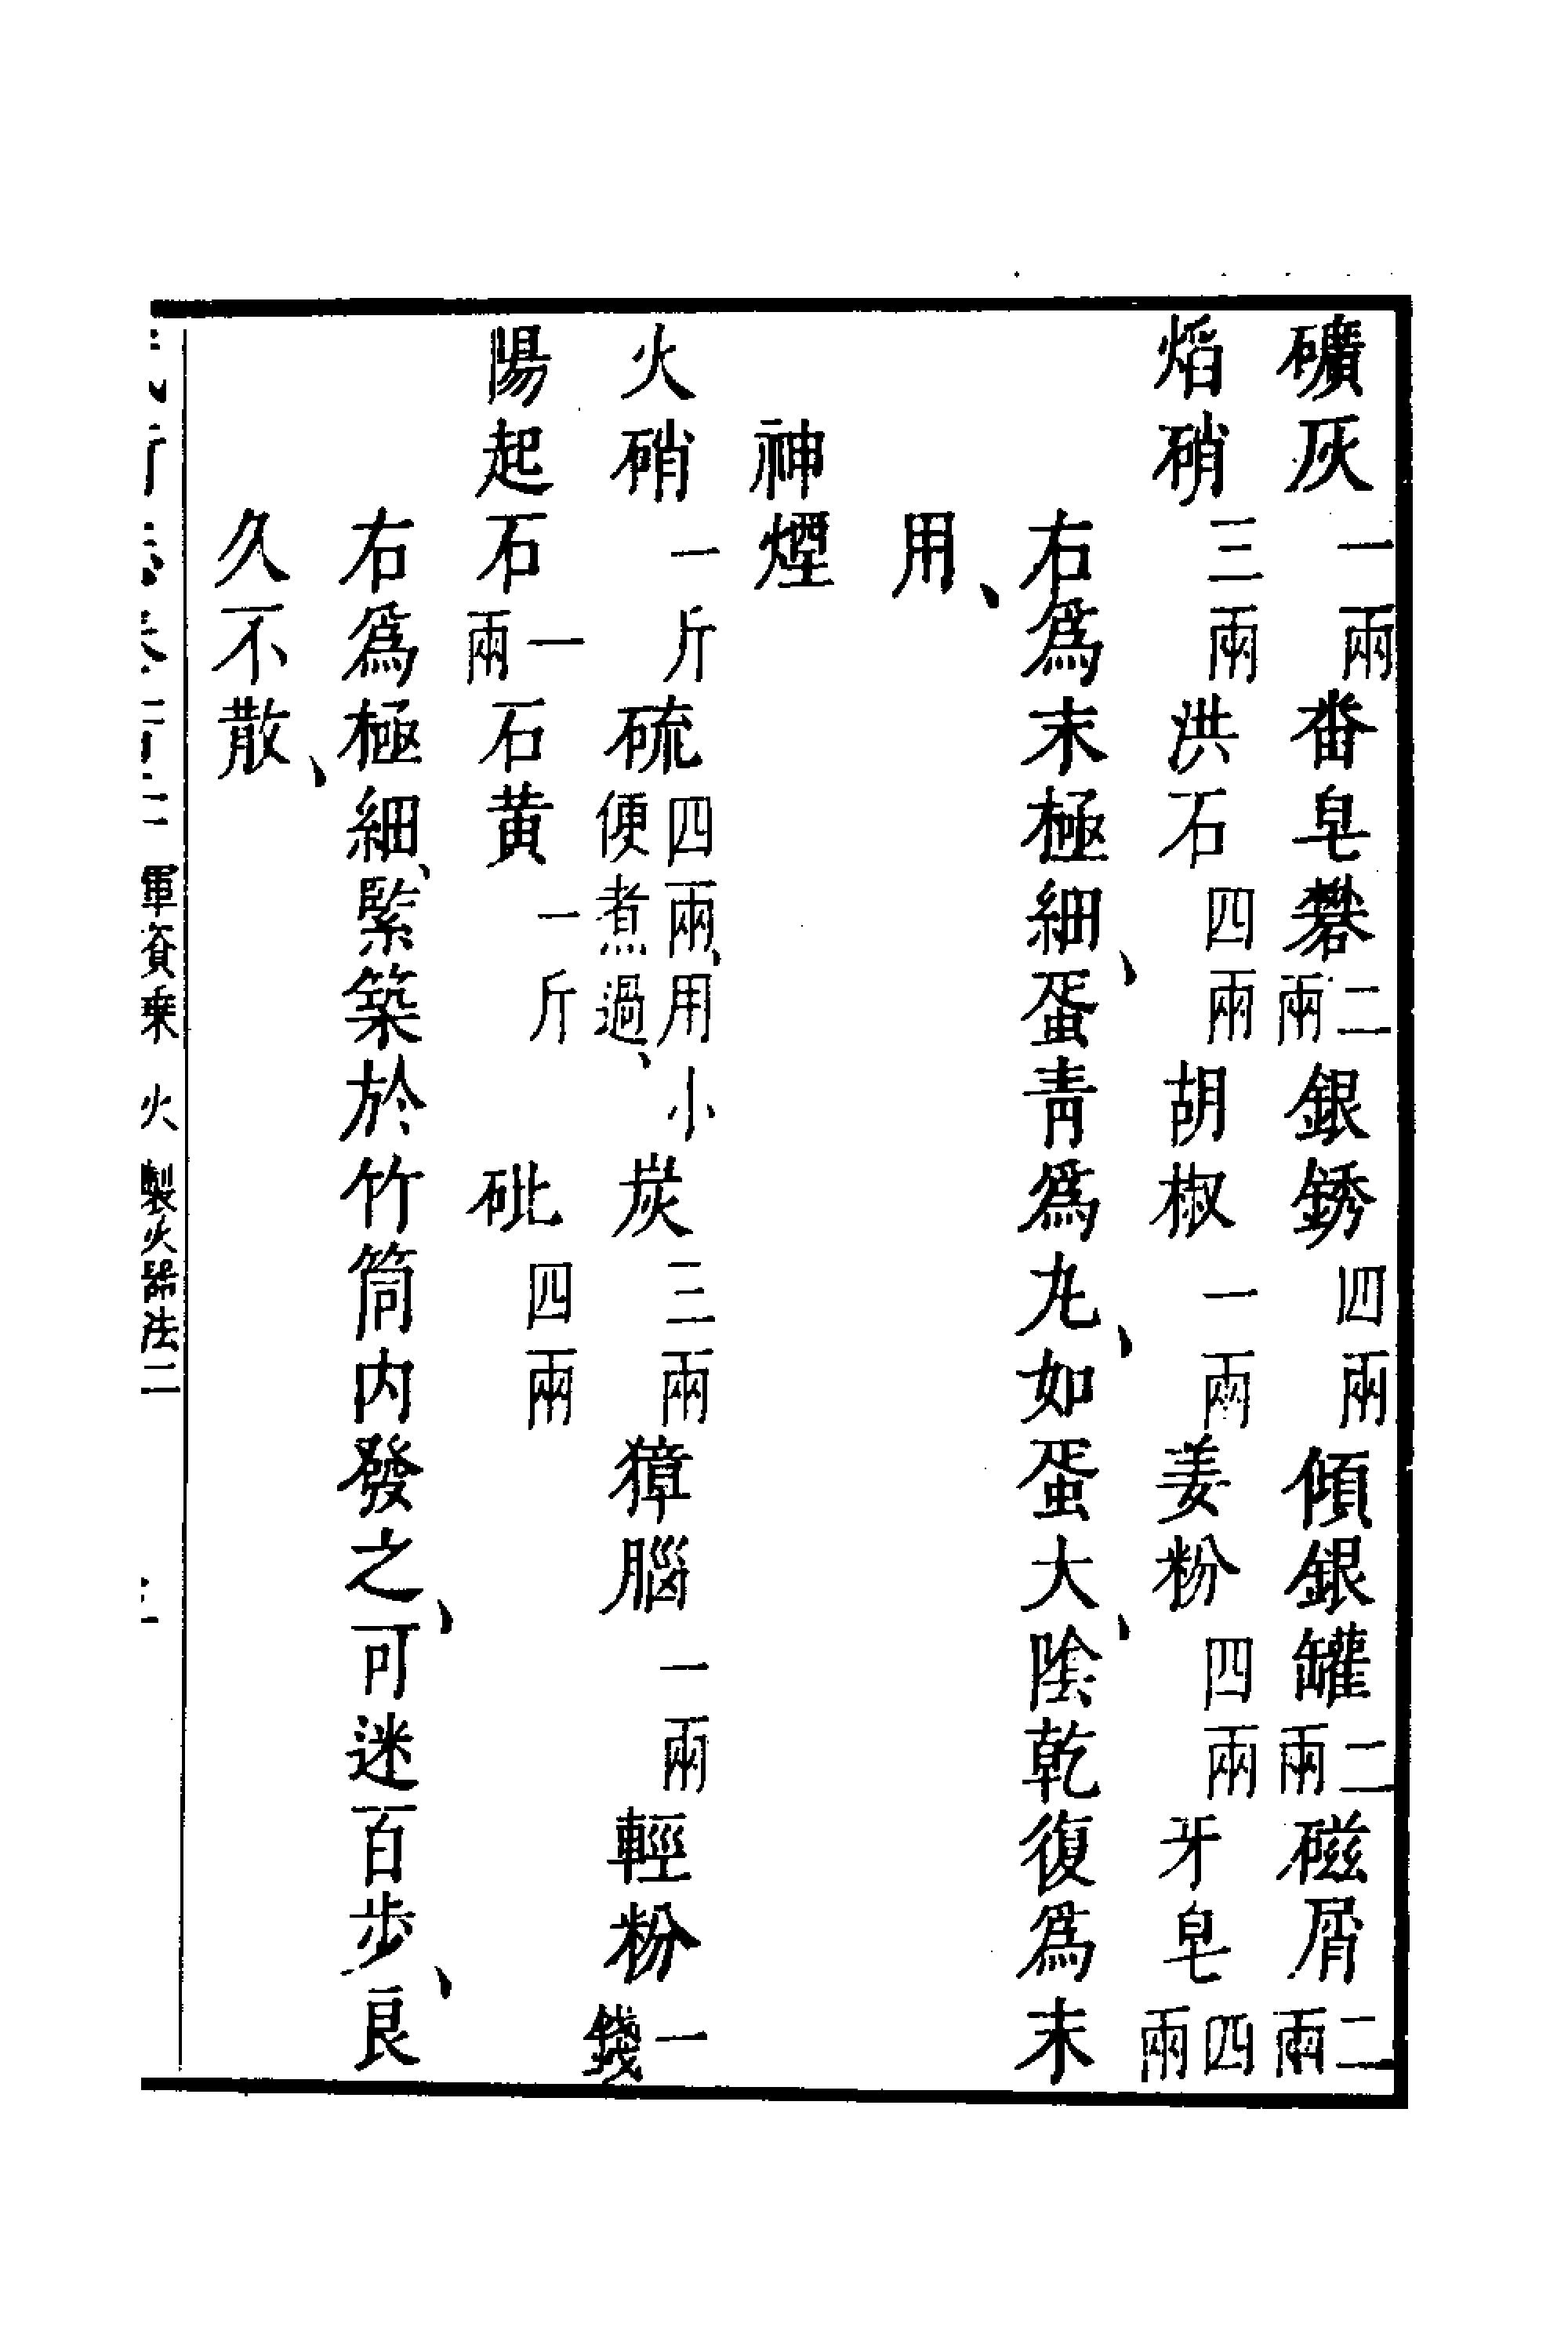 礦灰一兩 番皂礬二兩 銀銹四兩 傾銀罐二兩 磁屑二兩
焰硝三兩 洪石四兩 胡椒一兩 姜粉四兩 牙皂四兩
右爲末極細、蛋青爲丸、如蛋大、陰乾復爲末
用、
神煙
火硝一斤 硫四兩、用小便煮過、 炭三兩 獐腦一兩 輕粉一錢
陽起石一兩 石黄一斤 砒四兩
右爲極細、緊築於竹筒内發之、可迷百步、良
久不散、
軍資乗 火 製火器法二